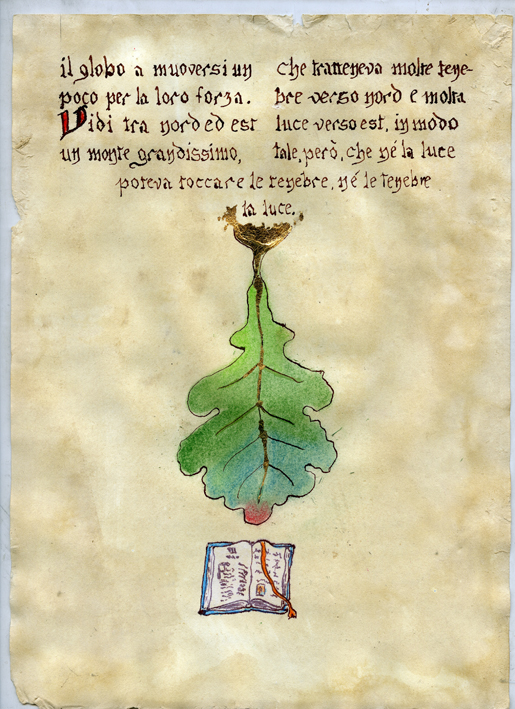 il globo a muoversi un
poco per la loro forza.
Vidi tra nord ed est
un monte grandissimo,
che tratteneva molte tene-
bre verso nord e molta
luce verso est, in modo
tale, però, che né la luce
poteva toccare le tenebre, né le tenebre
la luce.